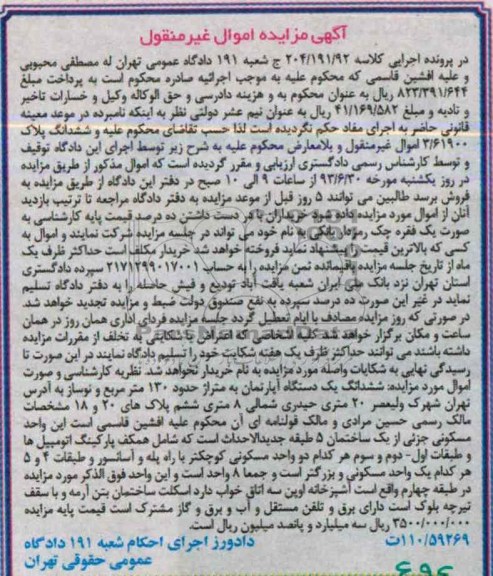 آگهی مزایده اموال غیرمنقول
در پرونده اجرایی کلاسه ۲۰۴/۱۹۱/۹۲ ج شعبه ۱۹۱ دادگاه عمومی تهران له مصطفی محبوبی
و علیه افشین قاسمی که محکوم علیه به موجب اجرائیه صادره محکوم است به پرداخت مبلغ
۸۲۳/۳۹۱/۶۴۴ ریال به عنوان محکوم به و هزینه دادرسی و حق الوکاله وکیل و خسارات تاخیر
و تادیه و مبلغ ۴۱/۱۶۹/۵۸۲ ریال به عنوان نیم عشر دولتی نظر به اینکه نامبرده در موعد معینه
قانونی حاضر به اجرای مفاد حکم نگردیده است لذا حسب تقاضای محکوم علیه و ششدانگ پلاک
۳/۶۱۹۰۰ اموال غیرمنقول و بلامعارض محکوم علیه به شرح زیر توسط اجرای این دادگاه توقیف
و توسط کارشناس رسمی دادگستری ارزیابی و مقرر گردیده است که اموال مذکور از طریق مزایده
در روز یکشنبه مورخه ۹۳/۶/۳۰ از ساعات ۹ الی ۱۰ صبح در دفتر این دادگاه از طریق مزایده به
فروش برسد طالبین می توانند ۵ روز قبل از موعد مزایده به دفتر دادگاه مراجعه تا ترتیب بازدید
آنان از اموال مورد مزایده داده شود خریداران با در دست داشتن ده درصد قیمت پایه کارشناسی به
صورت یک فقره چک رمزدار بانکی به نام خود می تواند در جلسه مزایده شرکت نمایند و اموال به
کسی که بالاترین قیمت را پیشنهاد نماید فروخته خواهد شد خریدار مکلف است حداکثر ظرف یک
ماه از تاریخ جلسه مزایده باقیمانده ثمن مزایده را به حساب ۲۱۷۱۲۹۹۰۱۷۰۰۱ سپرده دادگستری
استان تهران نزد بانک ملی ایران شعبه یافت آباد تودیع و فیش حاصله را به دفتر دادگاه تسلیم
نماید در غیر این صورت ده درصد سپرده به نفع صندوق دولت ضبط و مزایده تجدید خواهد شد.
در صورتی که روز مزایده مصادف با ایام تعطیل گردد جلسه مزایده فردای اداری همان روز در همان
ساعت و مکان برگزار خواهد شد کلیه اشخاصی که اعتراض یا شکایتی به تخلف از مقررات مزایده
داشته باشند می توانند حداکثر ظرف یک هفته شکایت خود را تسلیم دادگاه نمایند در این صورت تا
رسیدگی نهایی به شکایات واصله مورد مزایده به نام خریدار نخواهد شد. نظریه کارشناسی و صورت
اموال مورد مزایده: ششدانگ یک دستگاه آپارتمان به متراژ حدود ۱۳۰ متر مربع و نوساز به آدرس
تهران شهرک ولیعصر ۲۰ متری حیدری شمالی ۸ متری ششم پلاک های ۲۰ و ۱۸ مشخصات
مالک رسمی حسین مرادی و مالک قولنامه ای آن محکوم علیه افشین قاسمی است این واحد
مسکونی جزئی از یک ساختمان ۵ طبقه جدیدالاحداث است که شامل همکف پارکینگ اتومبیل ها
و طبقات اول- دوم و سوم هر کدام دو واحد مسکونی کوچکتر با راه پله و آسانسور و طبقات ۴ و ۵
هر کدام یک واحد مسکونی و بزرگتر است و جمعا ۸ واحد است و این واحد فوق الذکر مورد مزایده
در طبقه چهارم واقع است آشپزخانه اوپن سه اتاق خواب دارد اسکلت ساختمان بتن آرمه و با سقف
تیرچه بلوک است دارای برق و تلفن مستقل و آب و برق و گاز مشترک است قیمت پایه مزایده
۳۵۰۰/۰۰۰/۰۰۰ ریال سه میلیارد و پانصد میلیون ریال است.
۱۱۰/۵۹۲۶۹ت
دادورز اجرای احکام شعبه ۱۹۱ دادگاه
عمومی حقوقی تهران